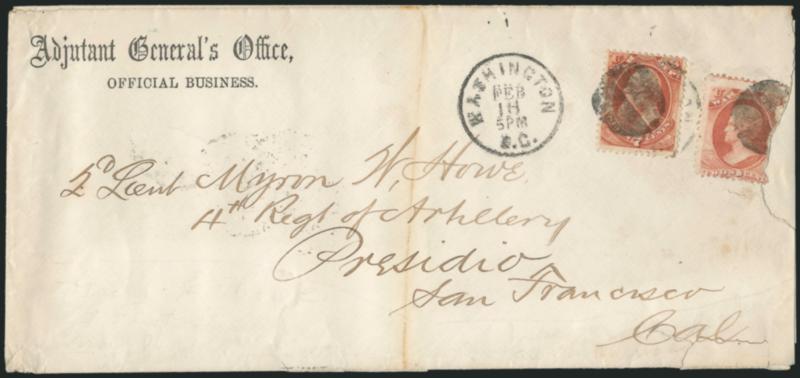 Adjutant General's Office,
OFFICIAL BUSINESS.
WASHINGTON
FEB
18
5PM
D.C.
2d Lieut Myron W. Howe
4th Regt of Artillery
Presidio
San Francisco
Cal